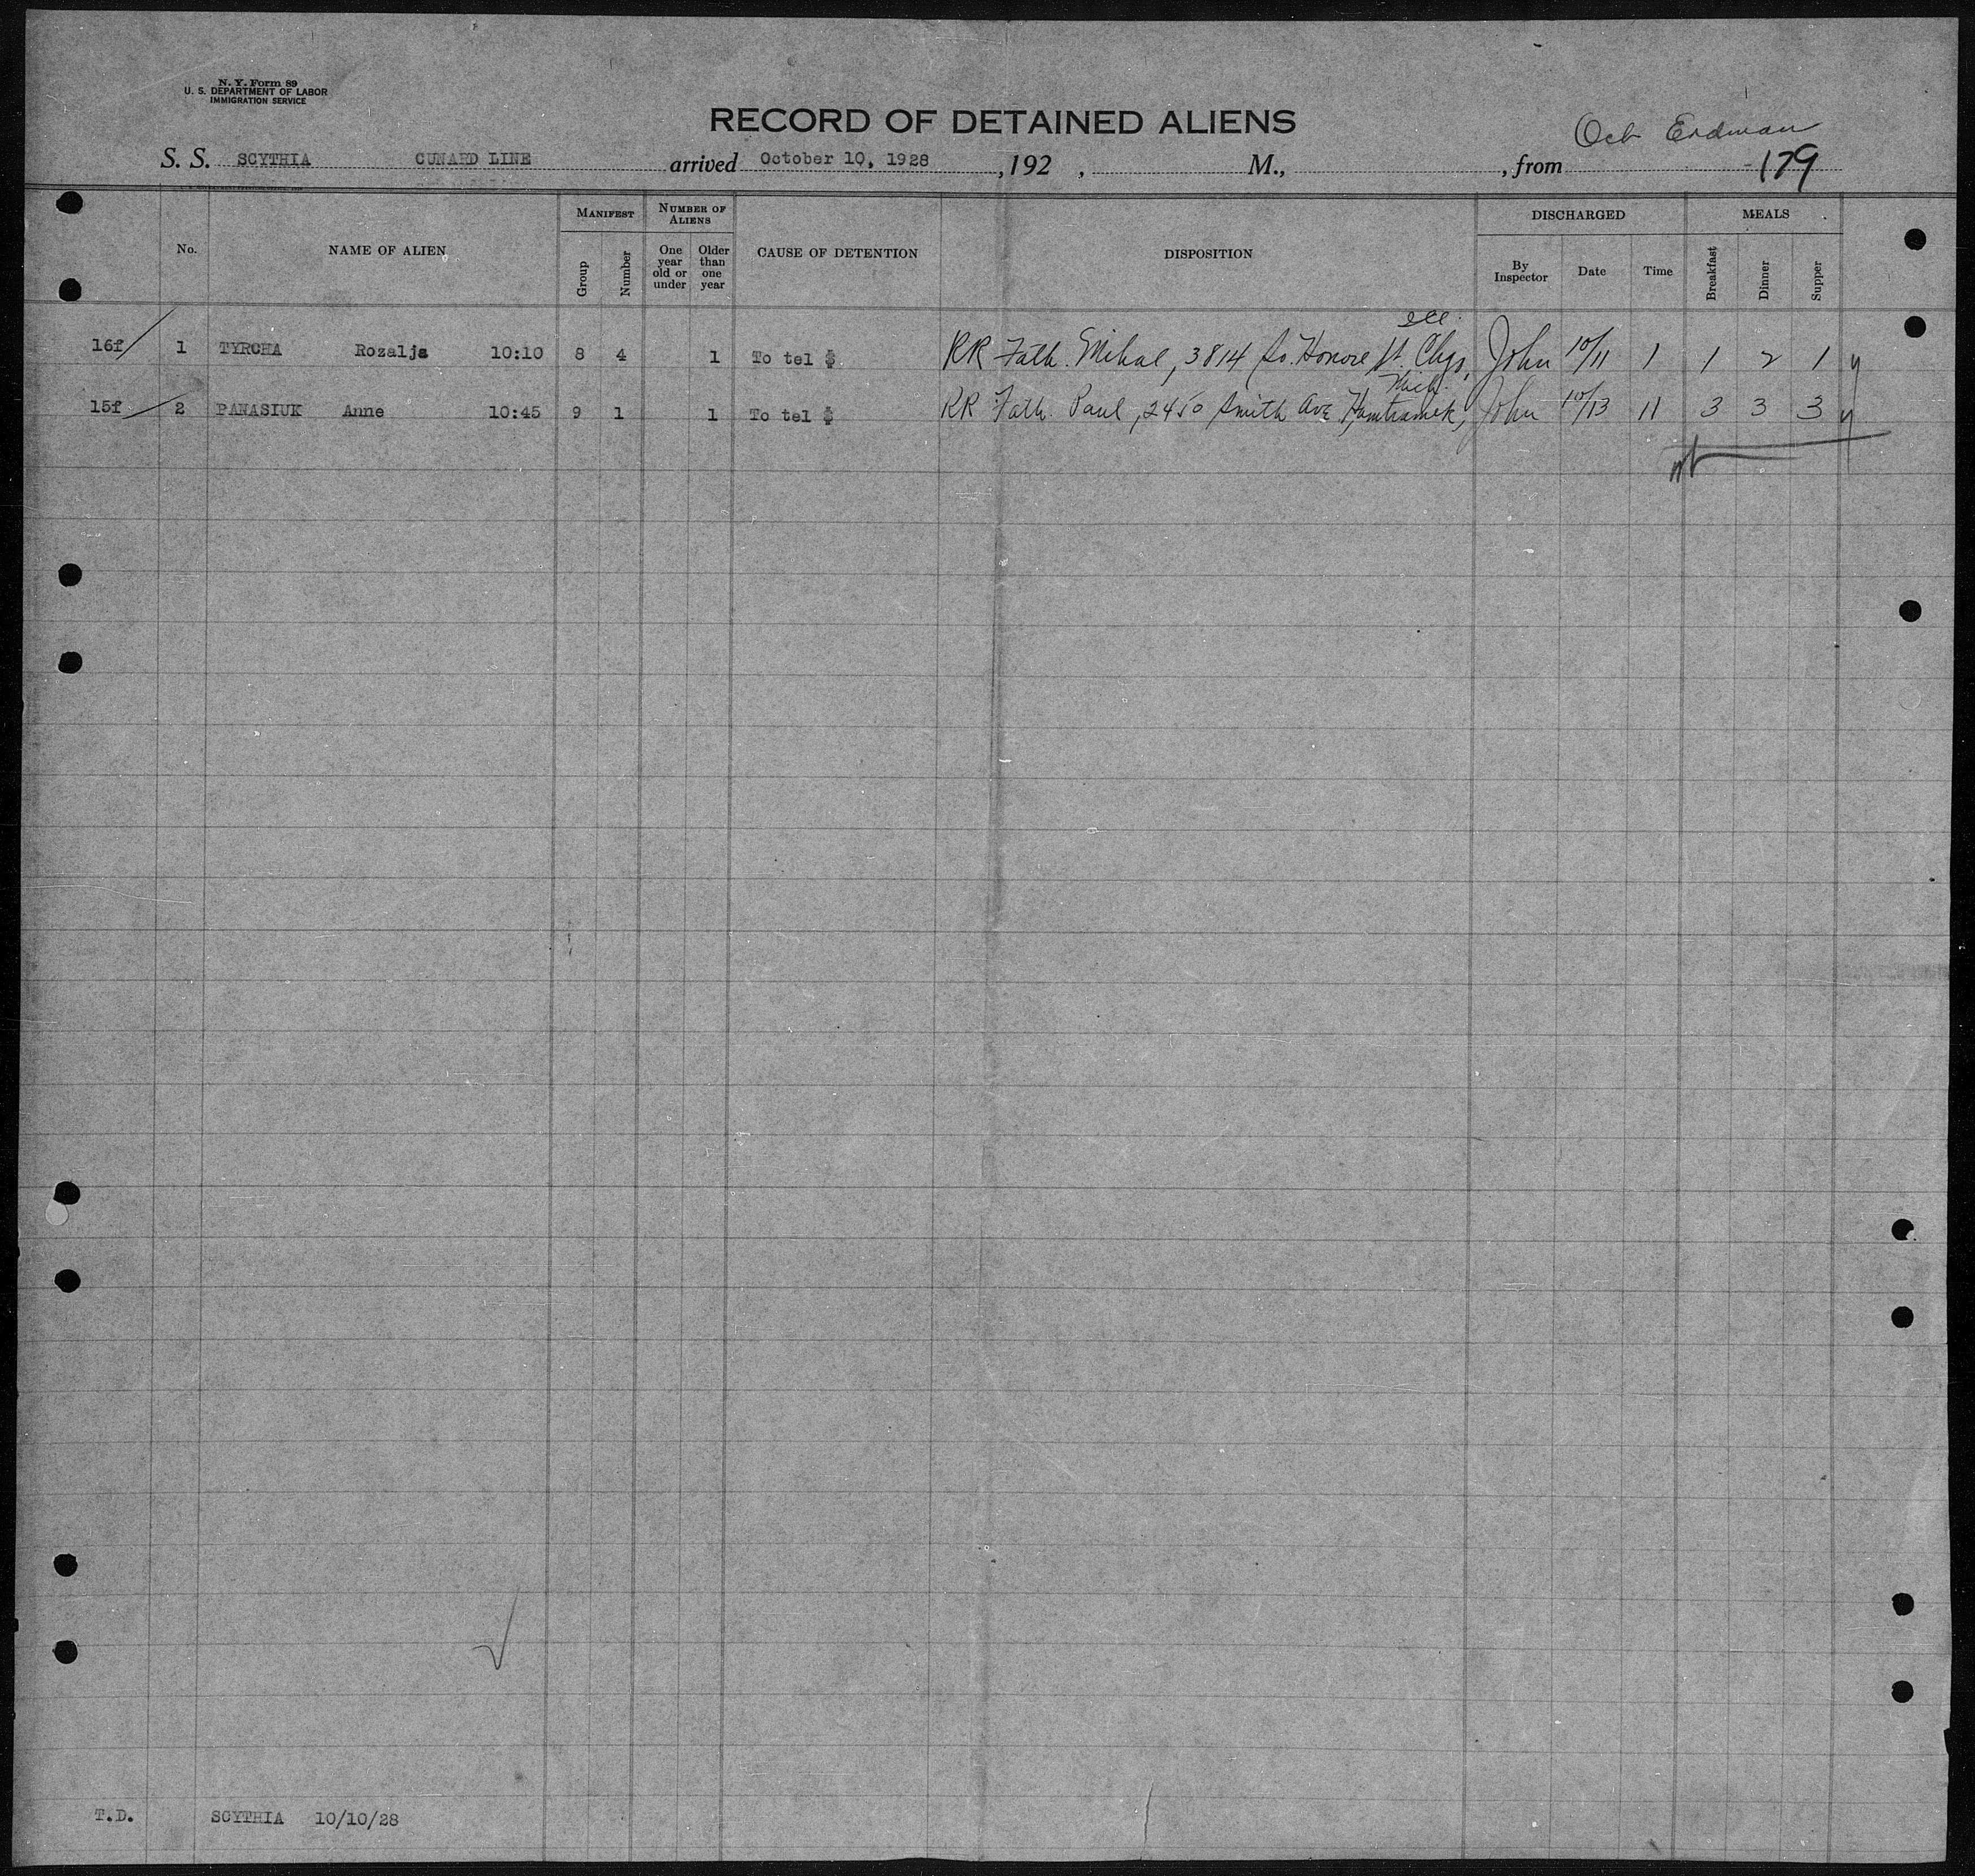 N. Y. Form 89
U. S. DEPARTMENT OF LABOR
IMMIGRATION SERVICE
RECORD OF DETAINED ALIENS
Erdman
S. S. SCYTHIA CUNARD LINE arrived October 10, 1928, 192 , M., , from 179
No. NAME OF ALIEN MANIFEST Group Number NUMBER OF ALIENS One year old or under Older than one year CAUSE OF DETENTION DISPOSITION DISCHARGED By Inspector Date Time MEALS Breakfast Dinner Supper
Ill.
16f 1 TYRCHA Rozalja 10:10 8 4 1 To tel $ RR Fath. Mihal, 3814 So. Honore St. Chgo, John 10/11 1 1 2 1 y
Mich.
15f 2 PANASIUK Anne 10:45 9 1 1 To tel $ RR Fath. Paul, 2450 Smith Ave, Hamtramck, John 10/13 11 3 3 3 y
T.D. SCYTHIA 10/10/28